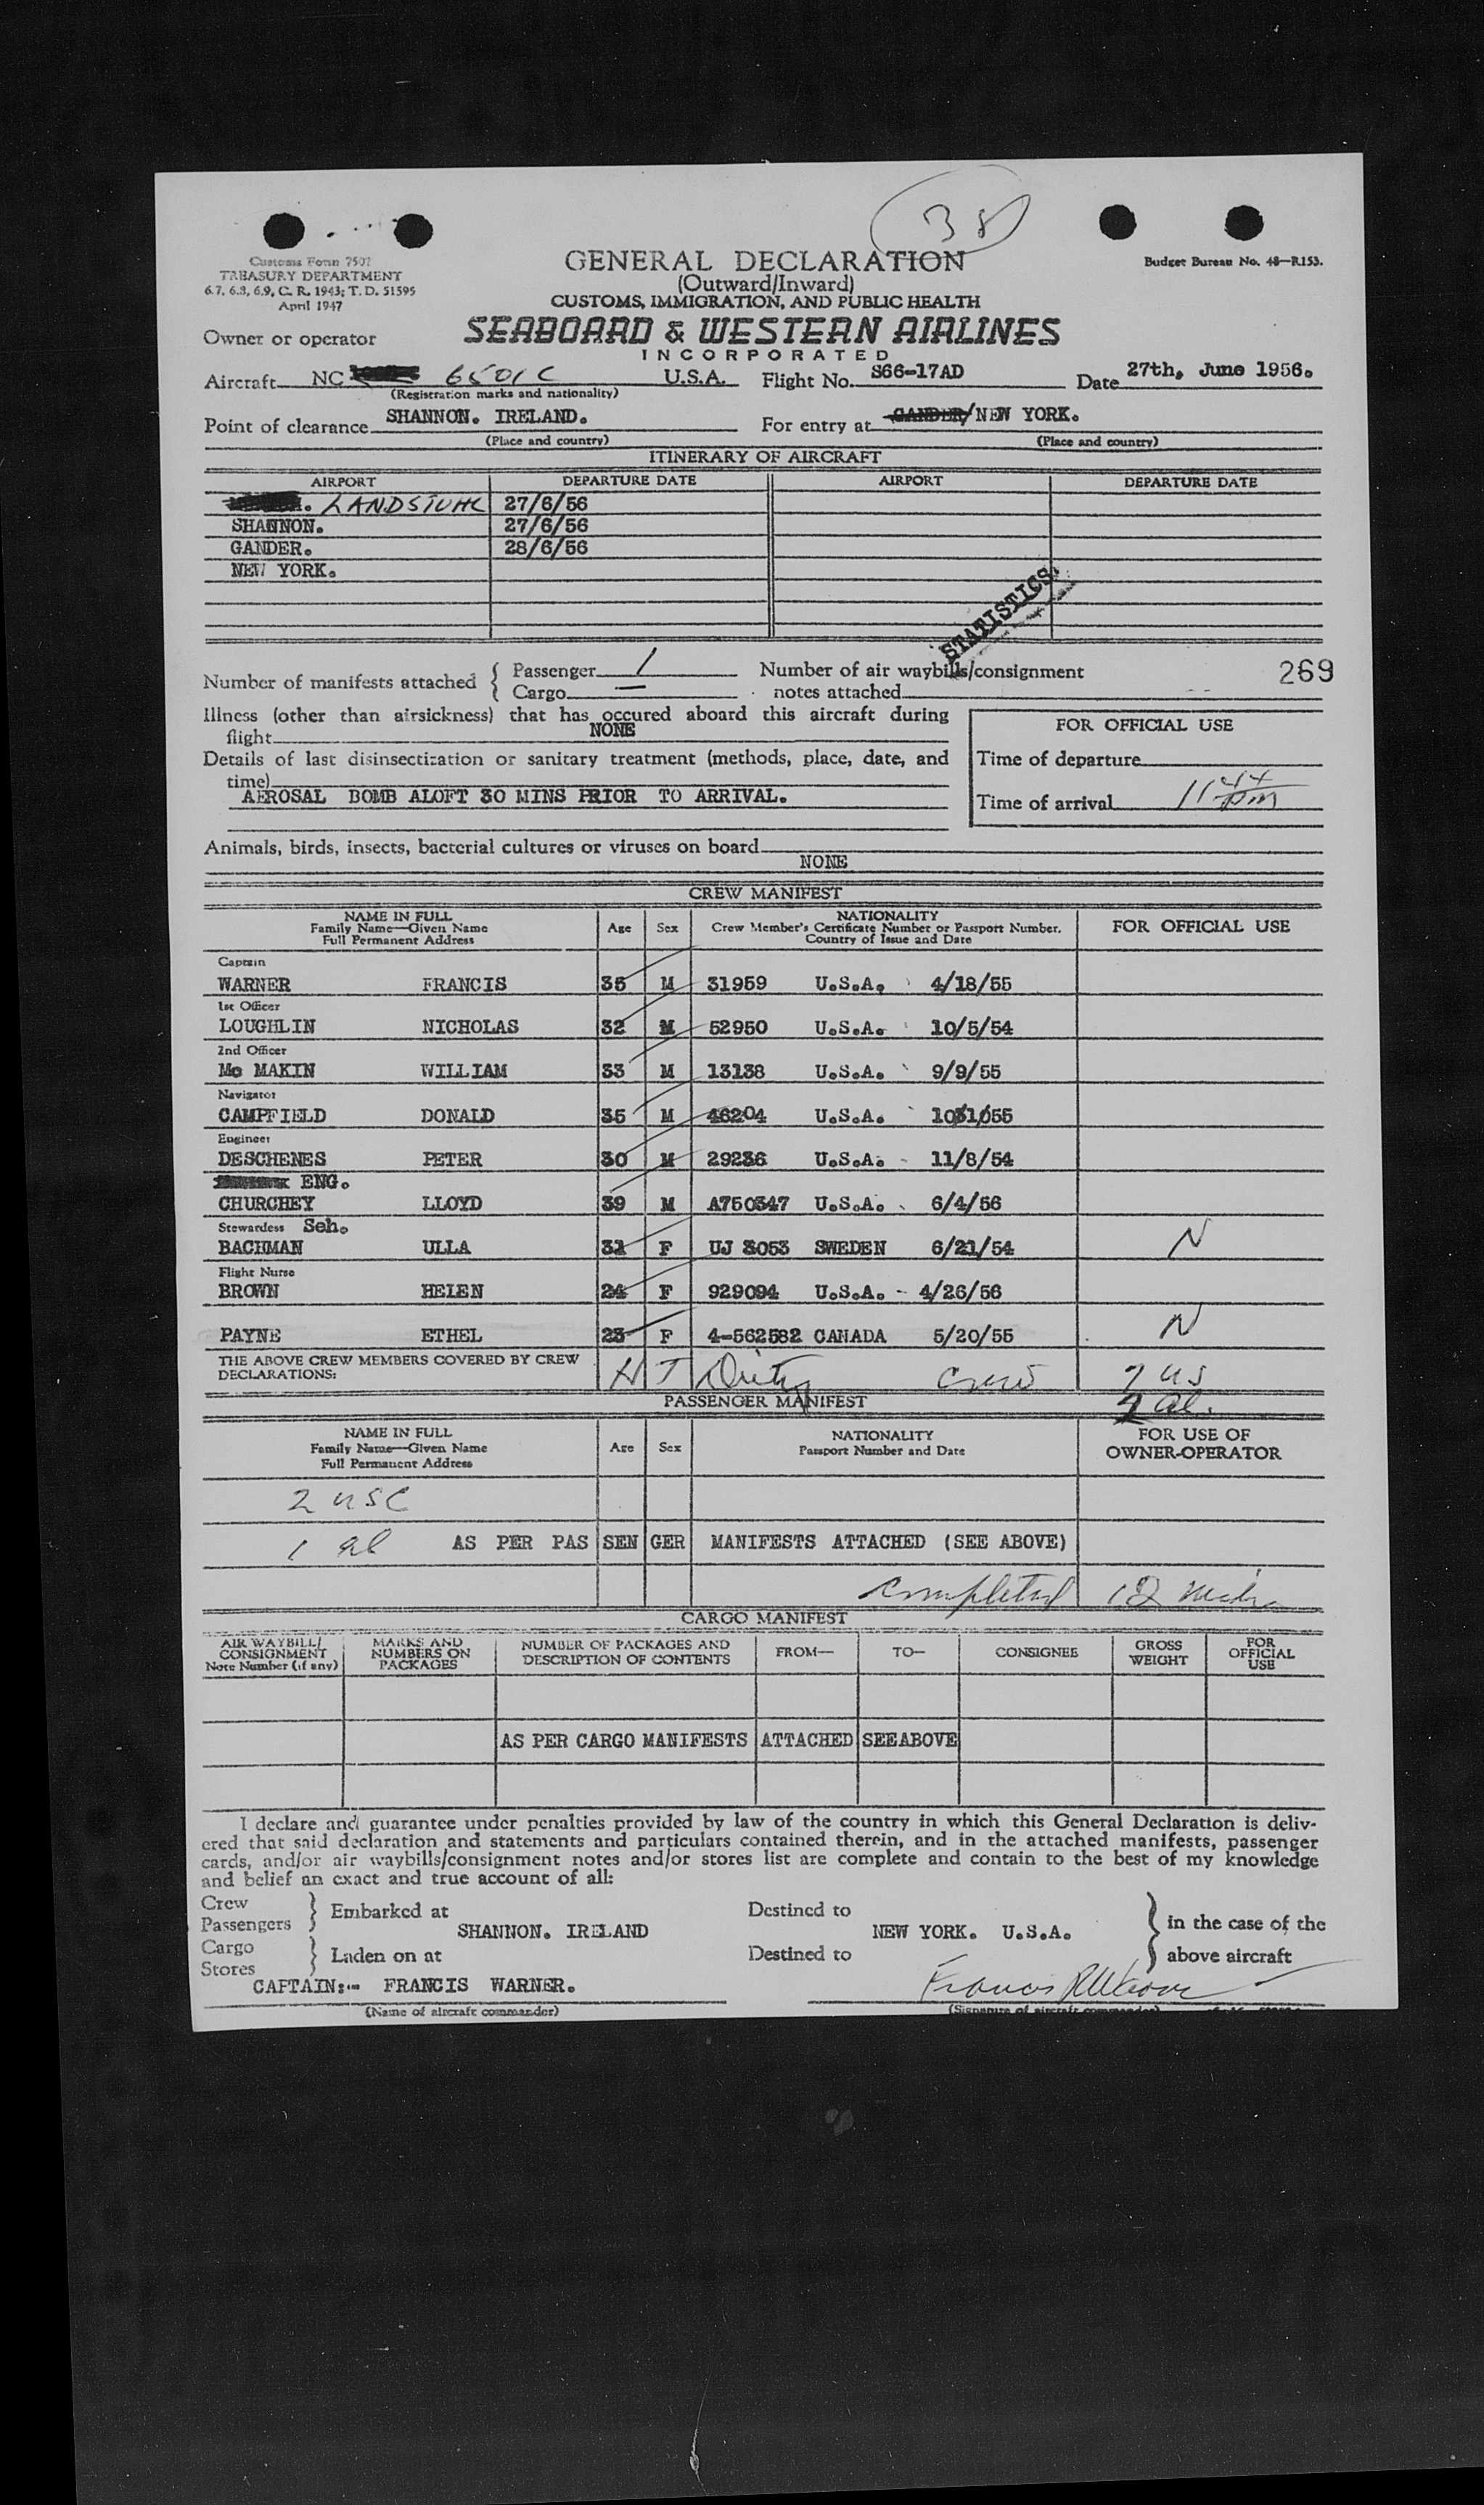 38
Customs Form 7507
TREASURY DEPARTMENT
6.7, 6.8, 6.9, C. R. 1943; T. D. 51595
April 1947
GENERAL DECLARATION
(Outward/Inward)
CUSTOMS, IMMIGRATION, AND PUBLIC HEALTH
Budget Bureau No. 48—R153.
Owner or operator SEABOARD & WESTERN AIRLINES
INCORPORATED
Aircraft NC 6501C U.S.A. Flight No. S66-17AD Date 27th, June 1956.
(Registration marks and nationality)
Point of clearance SHANNON. IRELAND. For entry at GANDER/NEW YORK.
(Place and country) (Place and country)
ITINERARY OF AIRCRAFT
AIRPORT DEPARTURE DATE AIRPORT DEPARTURE DATE
LANDSTUHL 27/6/56
SHANNON. 27/6/56
GANDER. 28/6/56
NEW YORK.
STATISTICS.
Number of manifests attached { Passenger 1 Number of air waybills/consignment 269
Cargo — notes attached
Illness (other than airsickness) that has occured aboard this aircraft during
flight NONE
FOR OFFICIAL USE
Details of last disinsectization or sanitary treatment (methods, place, date, and
time)
Time of departure
AEROSAL BOMB ALOFT 30 MINS PRIOR TO ARRIVAL.
Time of arrival 11 44 pm
Animals, birds, insects, bacterial cultures or viruses on board
NONE
CREW MANIFEST
NAME IN FULL
Family Name—Given Name
Full Permanent Address
Age Sex
NATIONALITY
Crew Member's Certificate Number or Passport Number.
Country of Issue and Date
FOR OFFICIAL USE
Captain
WARNER FRANCIS 35 M 31959 U.S.A. 4/18/55
1st Officer
LOUGHLIN NICHOLAS 32 M 52950 U.S.A. 10/5/54
2nd Officer
Mc MAKIN WILLIAM 33 M 13138 U.S.A. 9/9/55
Navigator
CAMPFIELD DONALD 35 M 46204 U.S.A. 10/31/55
Engineer
DESCHENES PETER 30 M 29236 U.S.A. 11/8/54
ENG.
CHURCHEY LLOYD 39 M A750347 U.S.A. 6/4/56
Stewardess Seh.
BACHMAN ULLA 31 F UJ 3053 SWEDEN 6/21/54 N
Flight Nurse
BROWN HELEN 24 F 929094 U.S.A. - 4/26/56
PAYNE ETHEL 23 F 4-562582 CANADA 5/20/55 N
THE ABOVE CREW MEMBERS COVERED BY CREW
DECLARATIONS:
H T Duty Crew 7 US
2 al.
PASSENGER MANIFEST
NAME IN FULL
Family Name—Given Name
Full Permanent Address
Age Sex
NATIONALITY
Passport Number and Date
FOR USE OF
OWNER-OPERATOR
2 USC
1 al AS PER PAS SEN GER MANIFESTS ATTACHED (SEE ABOVE)
completed 12
CARGO MANIFEST
AIR WAYBILL/
CONSIGNMENT
Note Number (if any)
MARKS AND
NUMBERS ON
PACKAGES
NUMBER OF PACKAGES AND
DESCRIPTION OF CONTENTS
FROM— TO— CONSIGNEE
GROSS
WEIGHT
FOR
OFFICIAL
USE
AS PER CARGO MANIFESTS ATTACHED SEEABOVE
I declare and guarantee under penalties provided by law of the country in which this General Declaration is deliv-
ered that said declaration and statements and particulars contained therein, and in the attached manifests, passenger
cards, and/or air waybills/consignment notes and/or stores list are complete and contain to the best of my knowledge
and belief an exact and true account of all:
Crew
Passengers } Embarked at SHANNON. IRELAND Destined to NEW YORK. U.S.A. } in the case of the
Cargo
Stores } Laden on at Destined to above aircraft
CAPTAIN:- FRANCIS WARNER. Francis R Warner
(Name of aircraft commander) (Signature of aircraft commander)